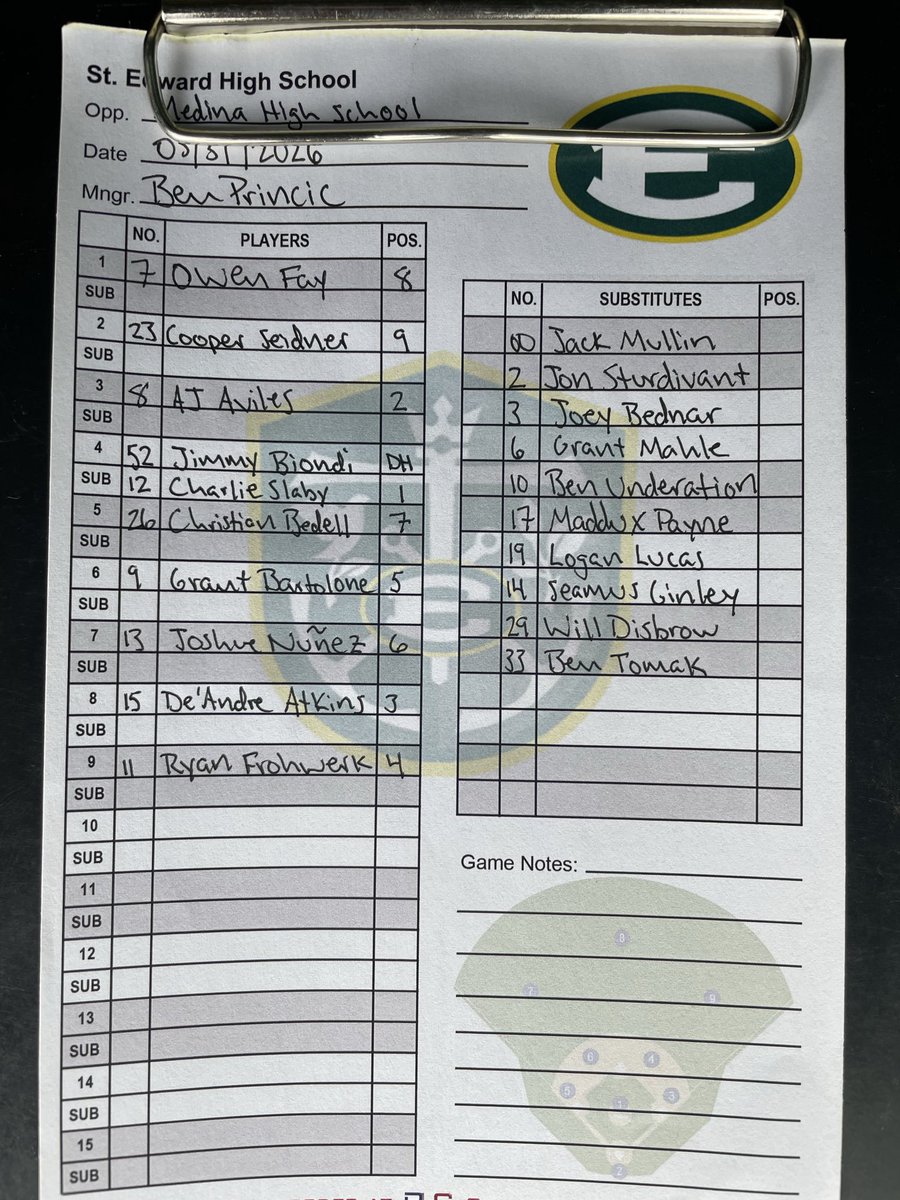 St. Edward High School
Opp. Medina High School
Date /2026
Mngr. Ben Princic
NO. PLAYERS POS.
1 7 Owen Fay 8
SUB
2 23 Cooper Seidner 9
SUB
3 8 AJ Aviles 2
SUB
4 52 Jimmy Biondi DH
SUB 12 Charlie Slaby 1
5 26 Christian Bedell 7
SUB
6 9 Grant Bartolone 5
SUB
7 13 Joshue Nuñez 6
SUB
8 15 De'Andre Atkins 3
SUB
9 11 Ryan Frohwerk 4
SUB
10
SUB
11
SUB
12
SUB
13
SUB
14
SUB
15
SUB
NO. SUBSTITUTES POS.
00 Jack Mullin
2 Jon Sturdivant
3 Joey Bednar
6 Grant Mahle
10 Ben Underation
17 Maddux Payne
19 Logan Lucas
14 Seamus Ginley
29 Will Disbrow
33 Ben Tomak
Game Notes:
8
7 9
6 4
5 1 3
2
E